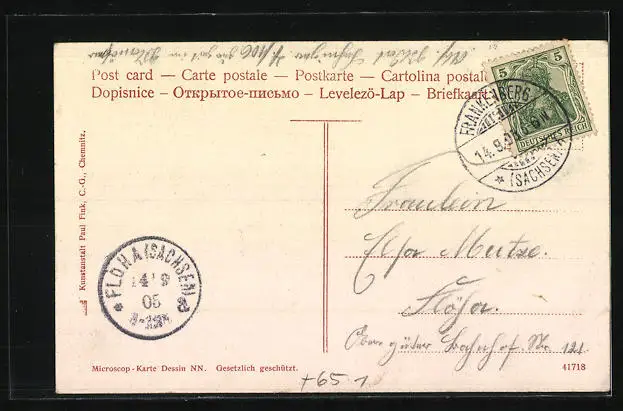 Post card — Carte postale — Postkarte — Cartolina postale
Dopisnice — Открытое-письмо — Levelező-Lap — Briefkaart
5 5
DEUTSCHES REICH
FRANKENBERG
14.9.
* (SACHSEN)
Fräulein
Elsa Mutze.
Flöha.
bahnhof Nr. 121
Kunstanstalt Paul Fink, C.-G., Chemnitz.
FLÖHA (SACHSEN)
14 9
05
Microscop-Karte Dessin NN. Gesetzlich geschützt.
+65.1
41718